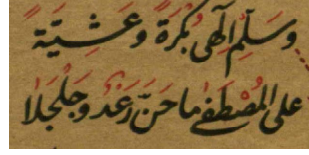 وَسَلِّمْ اِلٰهِي بُكْرَةً وَعَشِيَّةً
عَلَى الْمُصْطَفٰى مَا حَنَّ رَعْدٌ وَجَلْجَلَا